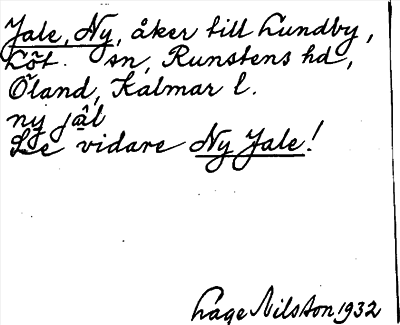 Jale, Ny, åker till Lundby,
Löt sn, Runstens hd,
Öland, Kalmar l.
ny jäl
Se vidare Ny Jale!
Lage Nilsson 1932